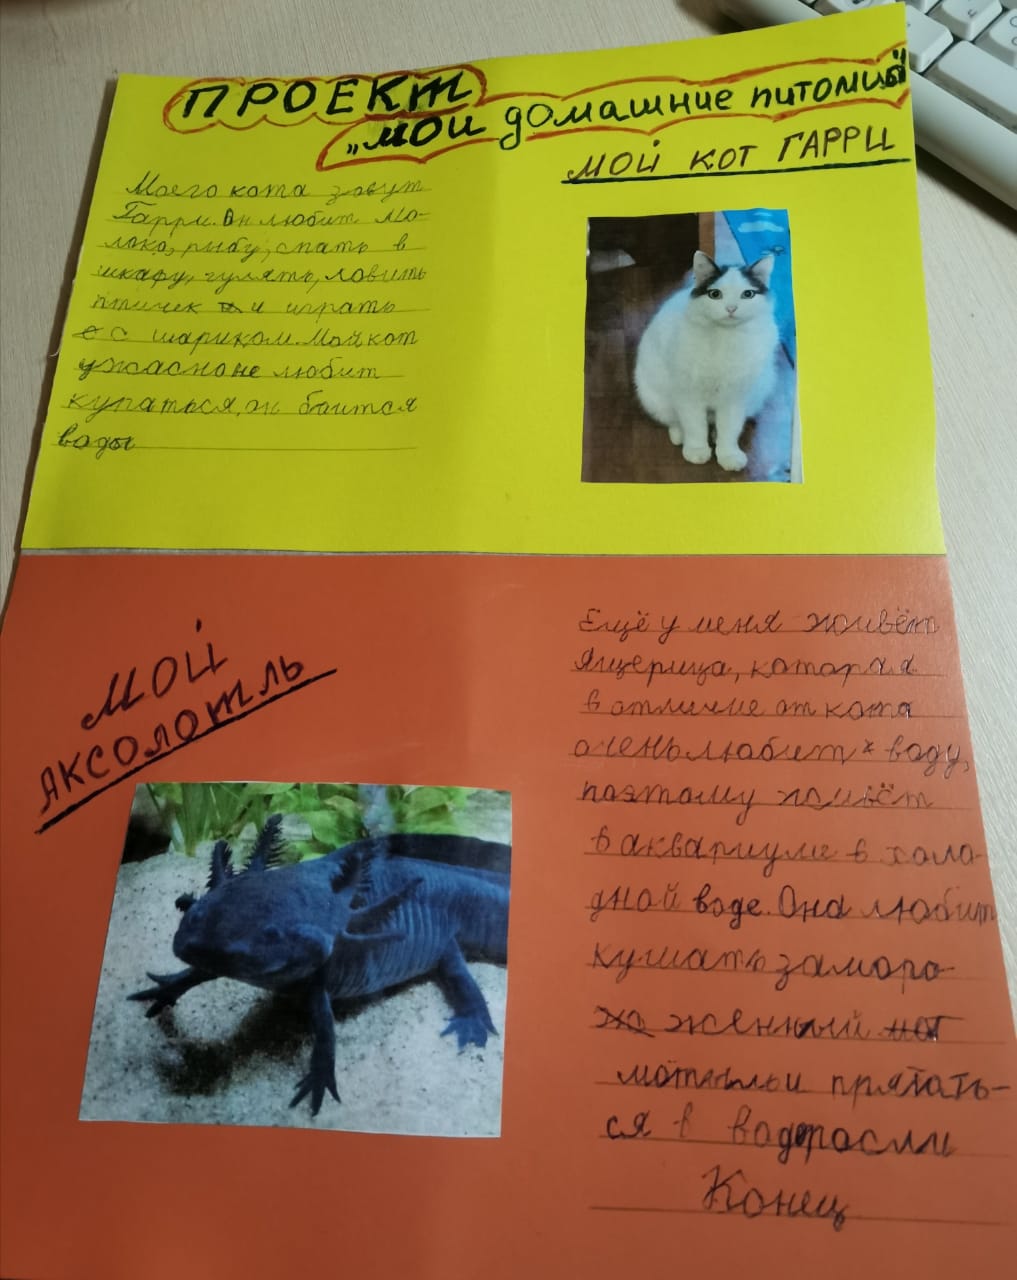 ПРОЕКТ
„Мои домашние питомцы"
МОЙ КОТ ГАРРИ
Моего кота зовут
Гарри. Он любит мо-
локо, рыбу, спать в
шкафу, гулять, ловить
птичек и играть
с шариком. Мой кот
ужасно не любит
купаться, он боится
воды
МОЙ
АКСОЛОТЛЬ
Ещё у меня живёт
ящерица, которая
в отличие от кота
очень любит воду,
поэтому живёт
в аквариуме в холо-
дной воде. Она любит
кушать заморо-
женный
мотыль и прятать-
ся в водоросли
Конец